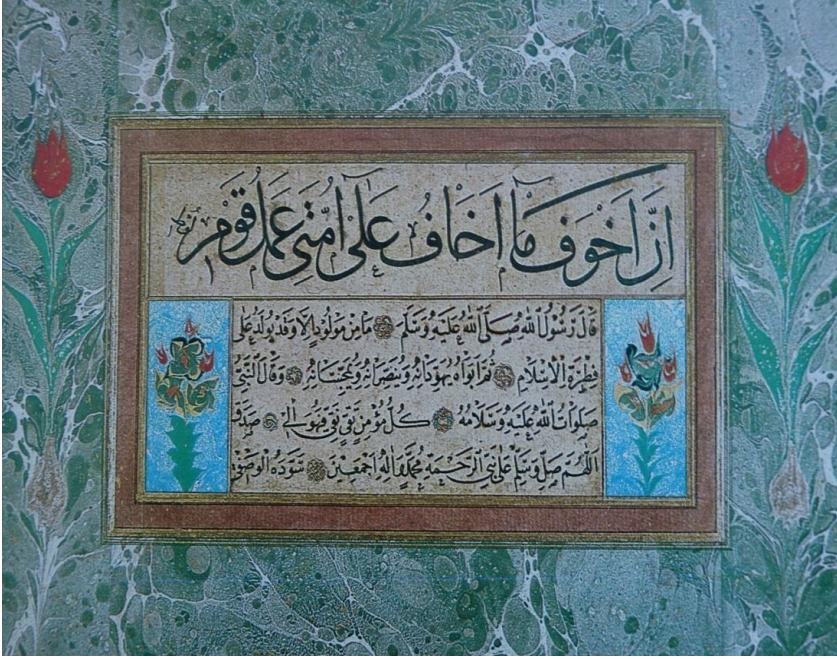 اِنَّ اَخْوَفَ مَا اَخَافُ عَلٰى اُمَّتِى عَمَلُ قَوْمِ لُوطٍ
قَالَ رَسُولُ اللّٰهِ صَلَّى اللّٰهُ عَلَيْهِ وَسَلَّمَ مَا مِنْ مَوْلُودٍ اِلَّا وَقَدْ يُولَدُ عَلٰى
فِطْرَةِ الْاِسْلَامِ ثُمَّ اَبَوَاهُ يُهَوِّدَانِهِ وَيُنَصِّرَانِهِ وَيُمَجِّسَانِهِ وَقَالَ النَّبِىُّ
صَلَوَاتُ اللّٰهِ عَلَيْهِ وَسَلَامُهُ كُلُّ مُؤْمِنٍ تَقِىٍّ نَقِىٍّ فَهُوَ اٰلِى
اَللّٰهُمَّ صَلِّ وَسَلِّمْ عَلٰى نَبِىِّ الرَّحْمَةِ مُحَمَّدٍ وَاٰلِهِ اَجْمَعِينَ سَوَّدَهُ الْوَصْفِى